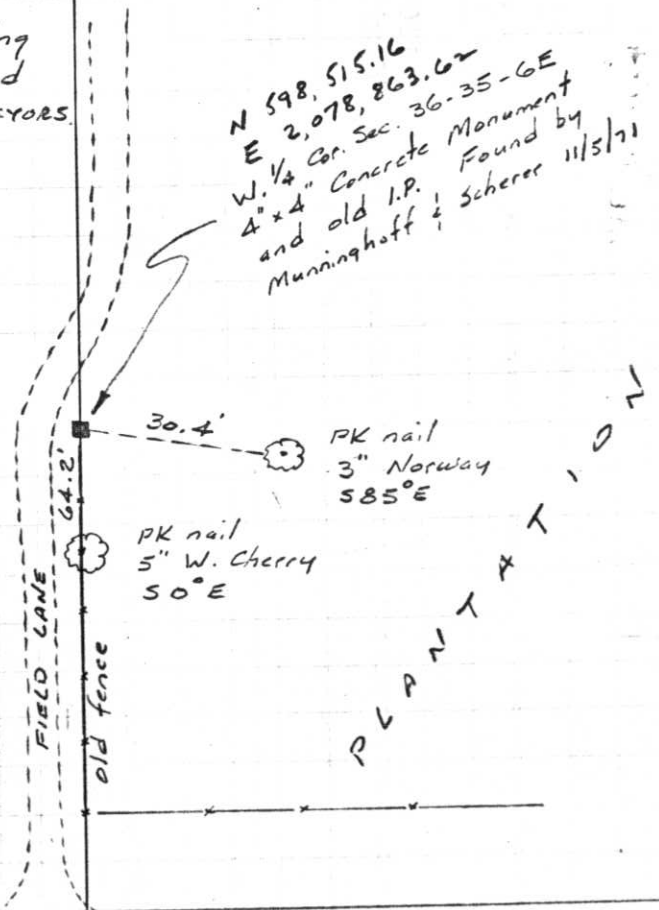 ng
d
EYORS.
N 598, 515.16
E 2,078, 863.62
W. 1/4 Cor. Sec. 36-35-6E
4" x 4" Concrete Monument
and old I.P. Found by
Munninghoff & Scherer 11/5/71
30.4'
PK nail
3" Norway
S85°E
64.2'
PK nail
5" W. Cherry
S0°E
FIELD LANE
old fence
PLANTATION